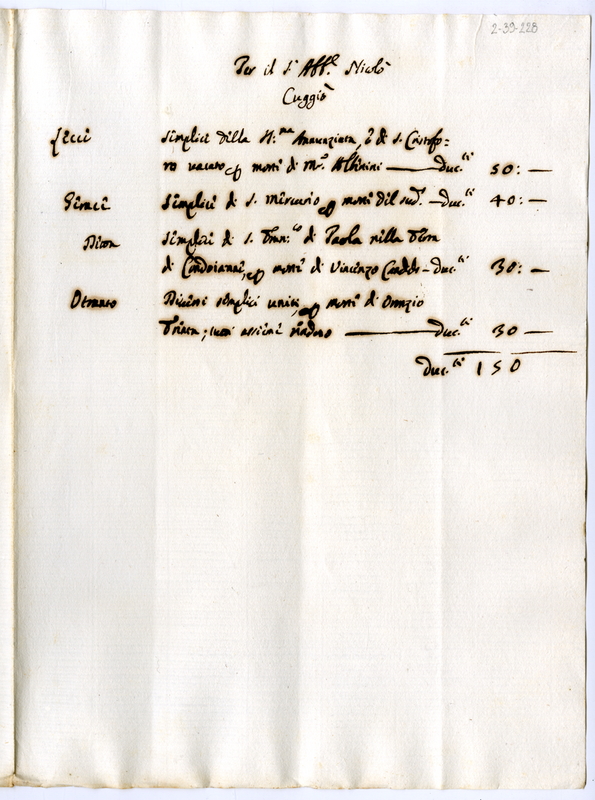 2-39-228
Per il S.r Abb.e Nicolò
Cuggiò
Lecci Simplici della SS.ma Annunziata, e di S. Cristofo=
ro vacato p morte di Mr. Albinini — duc.ti 50: —
Geraci Simplici di S. Mercurio p morte del sud.o — duc.ti 40: —
Simplici di S. Fran.co di Paola nella Terra
di Condoianni, p morte di Vincenzo Candido — duc.ti 30: —
Otranto Diversi simplici uniti, p morte di Oronzio
tutti assieme rendono — duc.ti 30 —
duc.ti 150